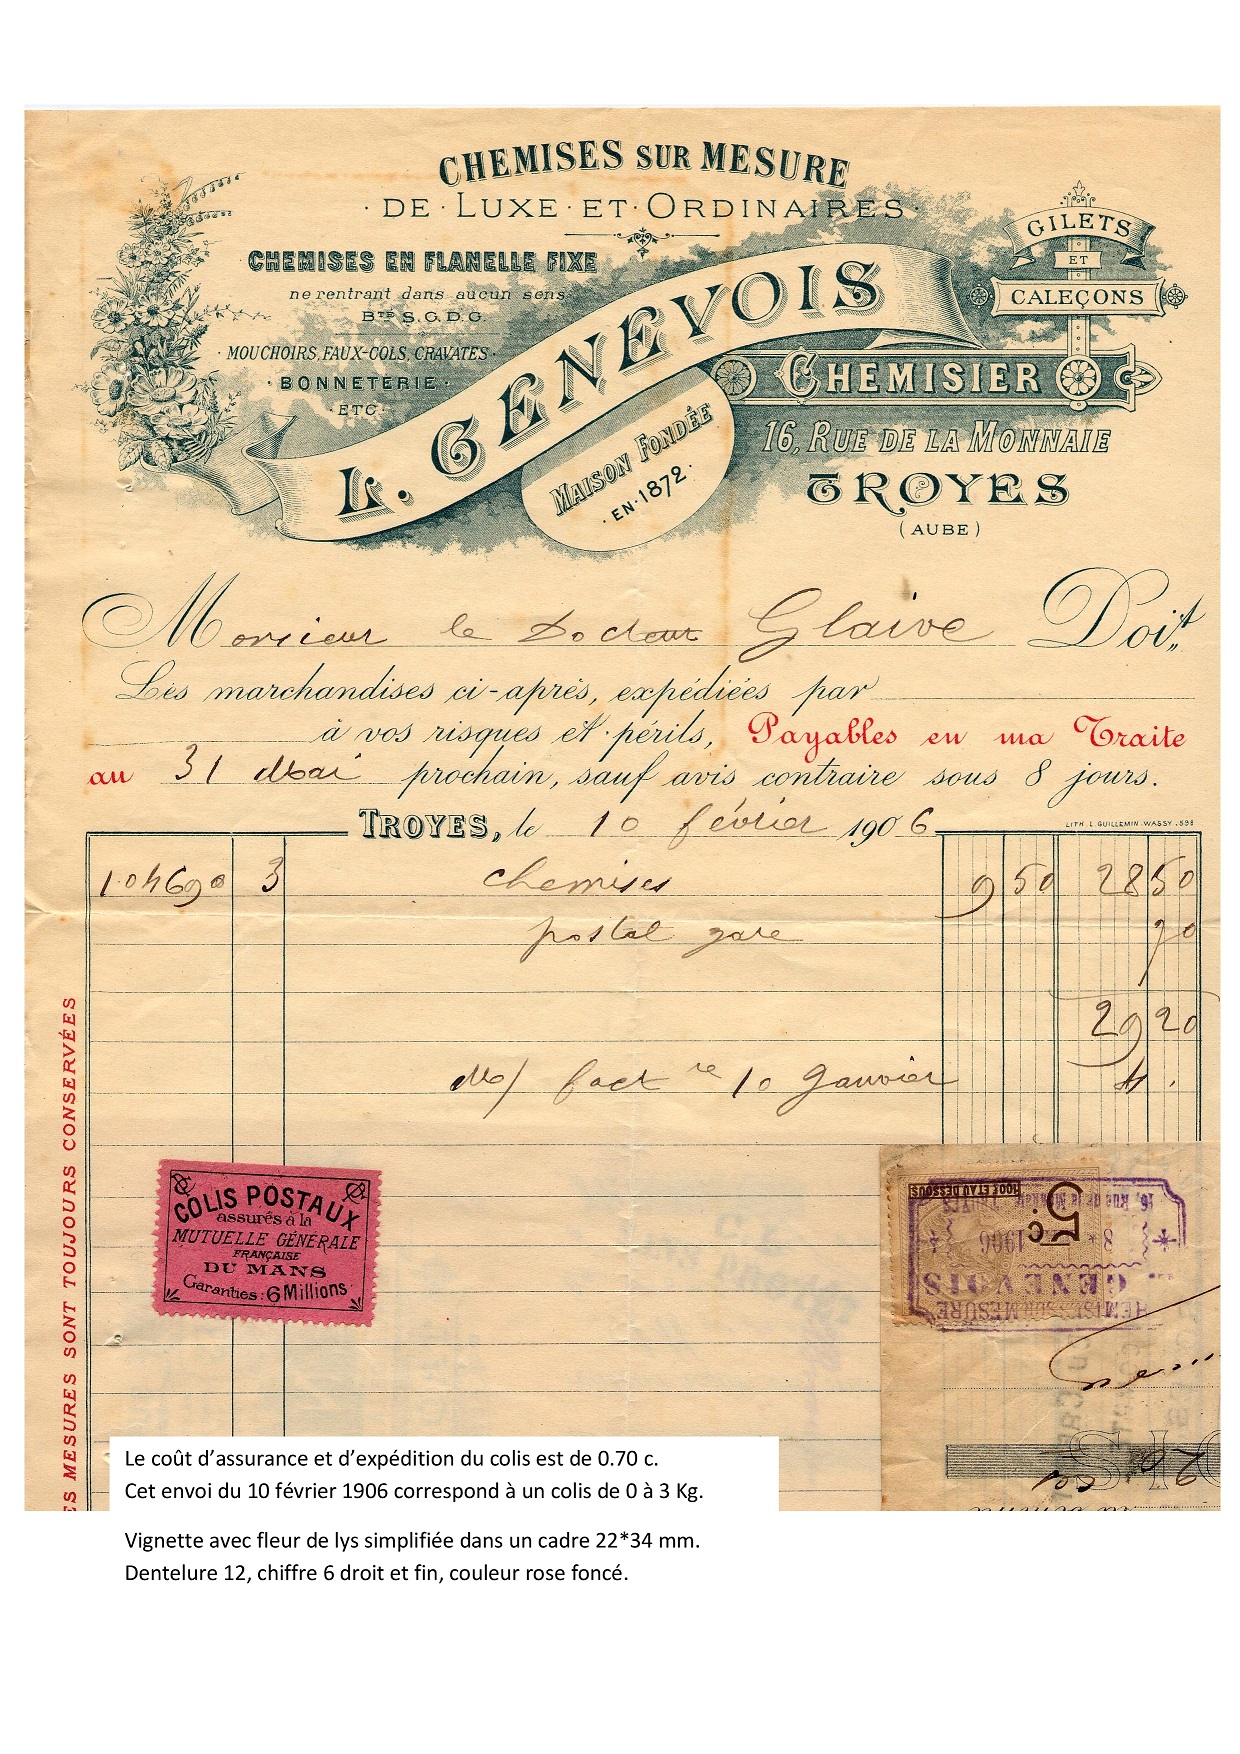 CHEMISES SUR MESURE
· DE · LUXE · ET · ORDINAIRES ·
CHEMISES EN FLANELLE FIXE
ne rentrant dans aucun sens
BTÉ S.G.D.G
· MOUCHOIRS, FAUX-COLS, CRAVATES ·
· BONNETERIE ·
· ETC ·
L. GENEVOIS
MAISON FONDÉE
· EN · 1872 ·
GILETS
ET
CALEÇONS
CHEMISIER
16, RUE DE LA MONNAIE
TROYES
(AUBE)
Monsieur le Docteur Glaive Doit
Les marchandises ci-après, expédiées par
à vos risques et périls, Payables en ma Traite
au 31 Mai prochain, sauf avis contraire sous 8 jours.
TROYES, le 10 février 1906
LITH. L. GUILLEMIN-WASSY
104690 3 chemises 9 50 28 50
postal gare 70
29 20
M/ fact re 10 Janvier
ES MESURES SONT TOUJOURS CONSERVÉES
COLIS POSTAUX
assurés à la
MUTUELLE GÉNÉRALE
FRANÇAISE
DU MANS
Garanties : 6 Millions
100F ET AU DESSOUS
5c
16, Rue de la Monnaie TROYES
8 1906
L. GENEVOIS
CHEMISES SUR MESURE
Le coût d’assurance et d’expédition du colis est de 0.70 c.
Cet envoi du 10 février 1906 correspond à un colis de 0 à 3 Kg.
Vignette avec fleur de lys simplifiée dans un cadre 22*34 mm.
Dentelure 12, chiffre 6 droit et fin, couleur rose foncé.